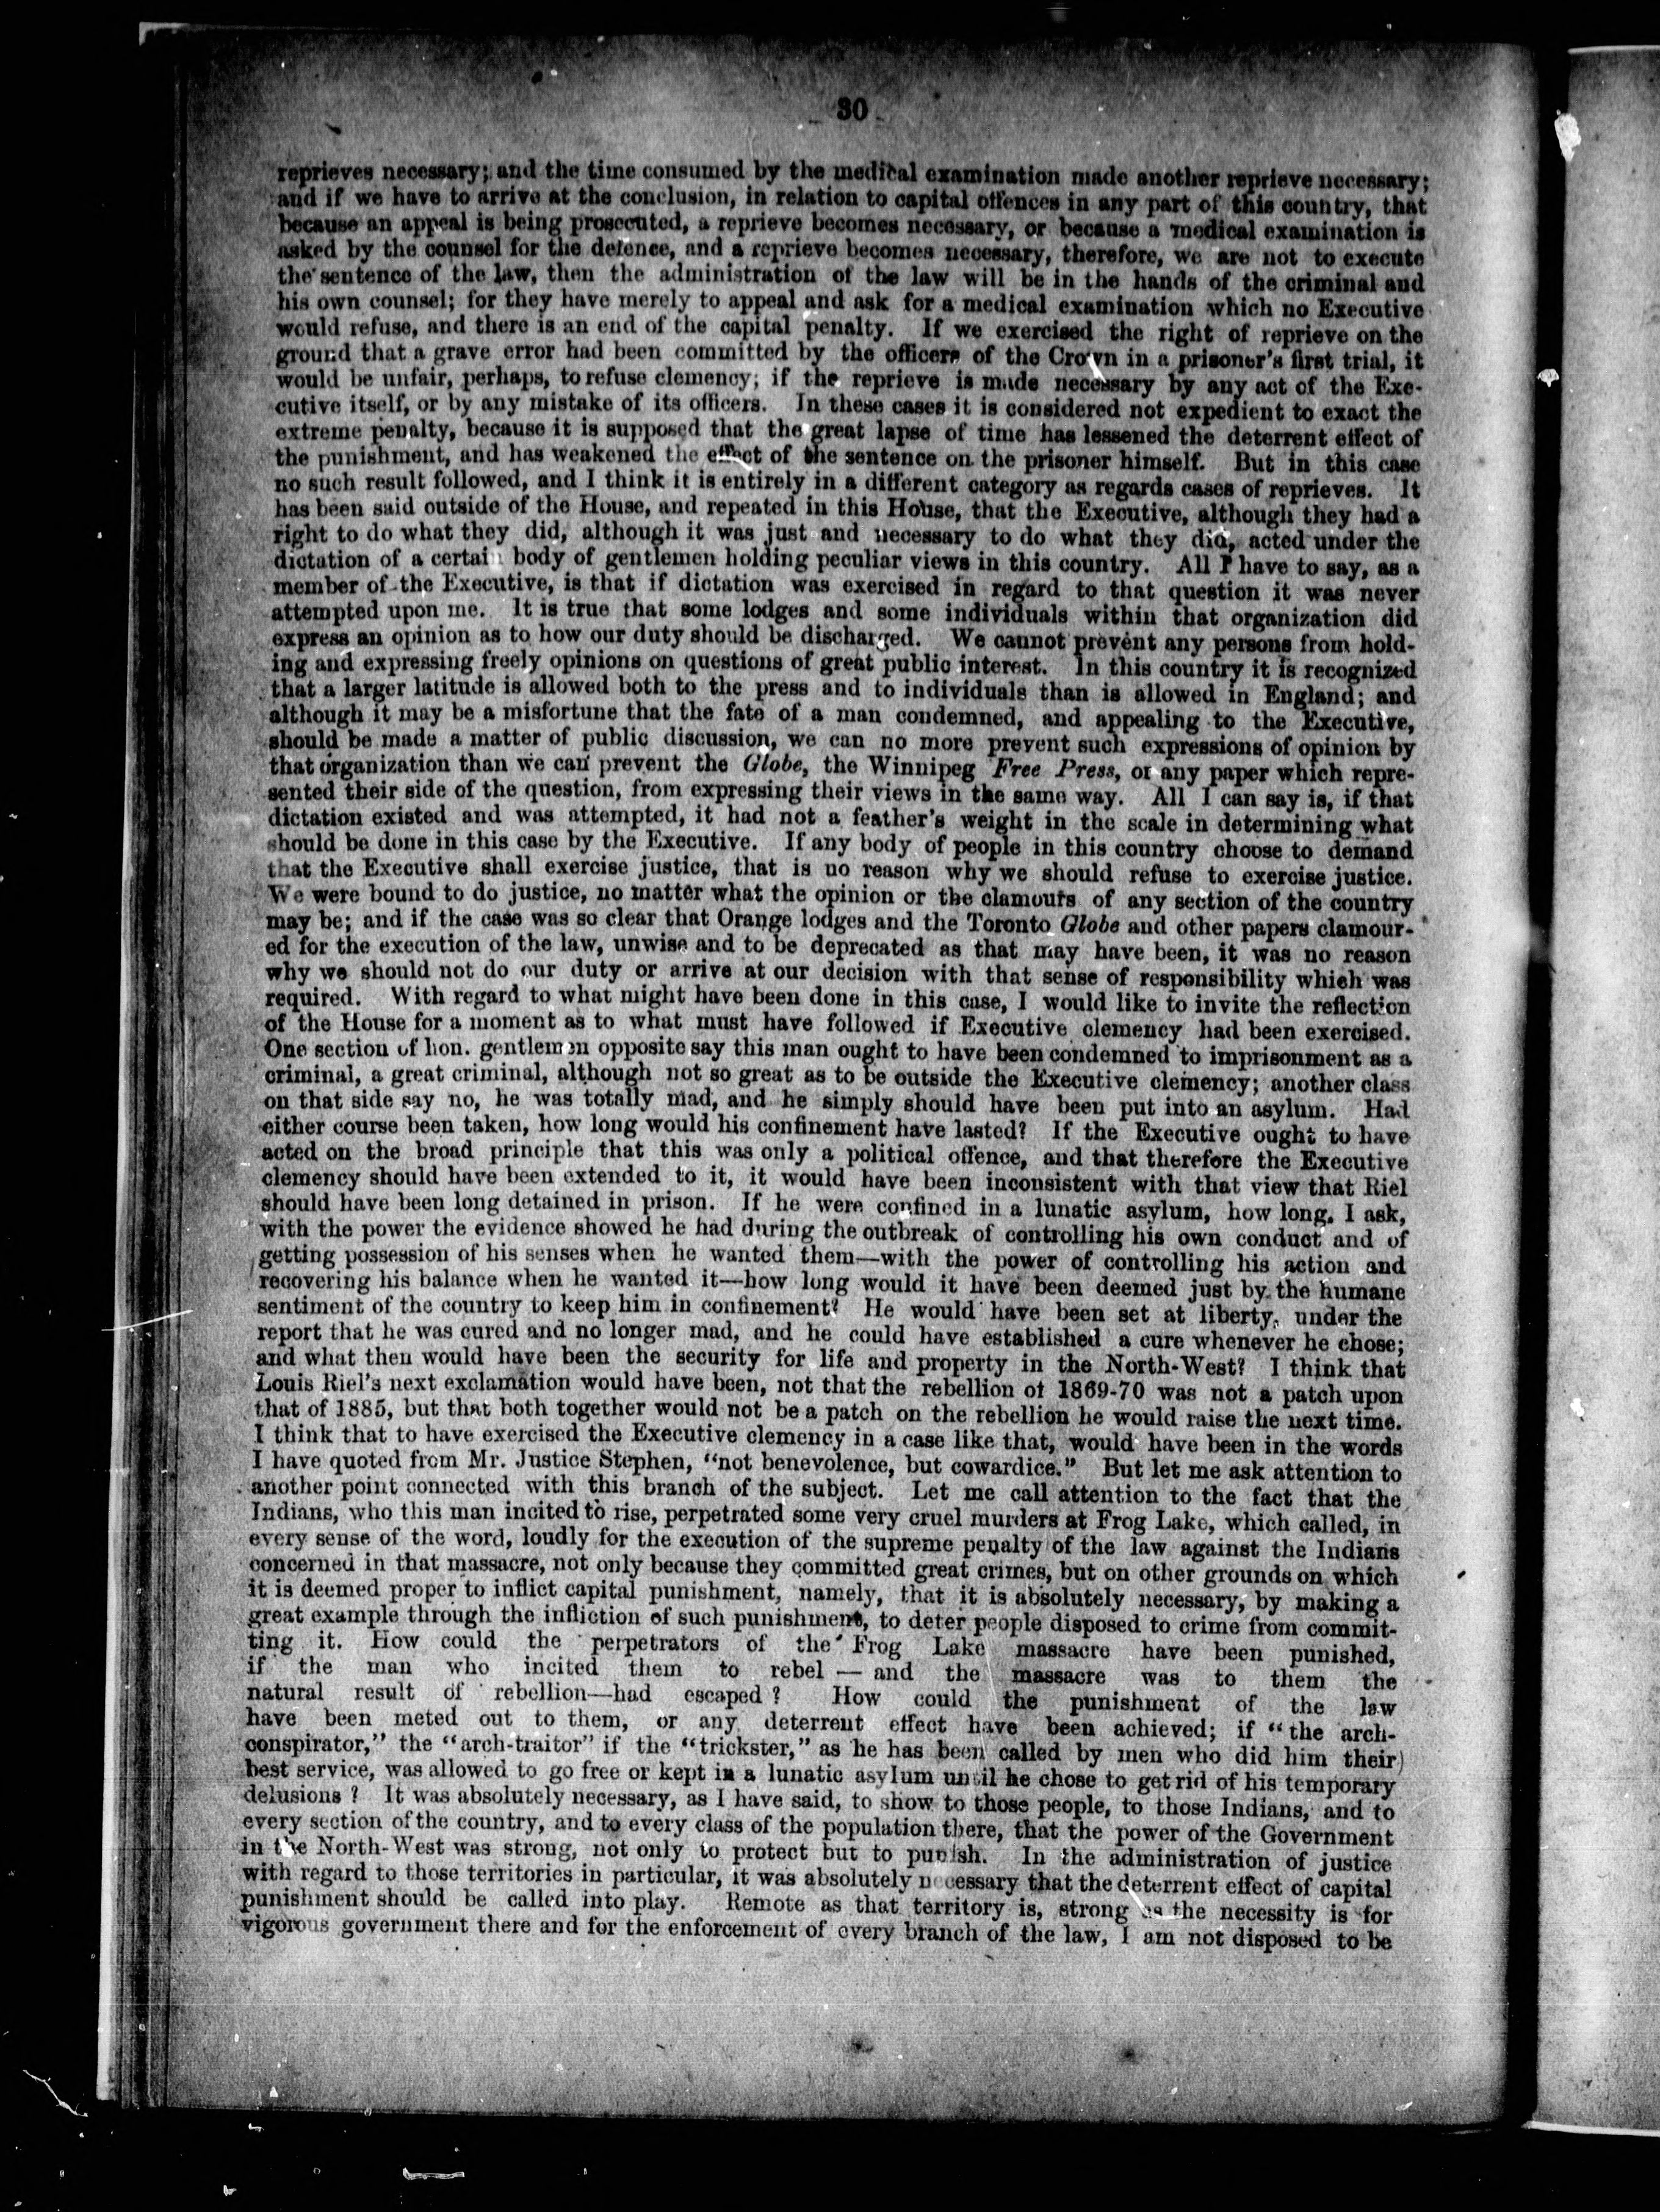 30
reprieves necessary; and the time consumed by the medical examination made another reprieve necessary;
and if we have to arrive at the conclusion, in relation to capital offences in any part of this country, that
because an appeal is being prosecuted, a reprieve becomes necessary, or because a medical examination is
asked by the counsel for the defence, and a reprieve becomes necessary, therefore, we are not to execute
the sentence of the law, then the administration of the law will be in the hands of the criminal and
his own counsel; for they have merely to appeal and ask for a medical examination which no Executive
would refuse, and there is an end of the capital penalty. If we exercised the right of reprieve on the
ground that a grave error had been committed by the officers of the Crown in a prisoner's first trial, it
would be unfair, perhaps, to refuse clemency; if the reprieve is made necessary by any act of the Exe-
cutive itself, or by any mistake of its officers. In these cases it is considered not expedient to exact the
extreme penalty, because it is supposed that the great lapse of time has lessened the deterrent effect of
the punishment, and has weakened the effect of the sentence on the prisoner himself. But in this case
no such result followed, and I think it is entirely in a different category as regards cases of reprieves. It
has been said outside of the House, and repeated in this House, that the Executive, although they had a
right to do what they did, although it was just and necessary to do what they did, acted under the
dictation of a certain body of gentlemen holding peculiar views in this country. All I have to say, as a
member of the Executive, is that if dictation was exercised in regard to that question it was never
attempted upon me. It is true that some lodges and some individuals within that organization did
express an opinion as to how our duty should be discharged. We cannot prevent any persons from hold-
ing and expressing freely opinions on questions of great public interest. In this country it is recognized
that a larger latitude is allowed both to the press and to individuals than is allowed in England; and
although it may be a misfortune that the fate of a man condemned, and appealing to the Executive,
should be made a matter of public discussion, we can no more prevent such expressions of opinion by
that organization than we can prevent the Globe, the Winnipeg Free Press, or any paper which repre-
sented their side of the question, from expressing their views in the same way. All I can say is, if that
dictation existed and was attempted, it had not a feather's weight in the scale in determining what
should be done in this case by the Executive. If any body of people in this country choose to demand
that the Executive shall exercise justice, that is no reason why we should refuse to exercise justice.
We were bound to do justice, no matter what the opinion or the clamours of any section of the country
may be; and if the case was so clear that Orange lodges and the Toronto Globe and other papers clamour-
ed for the execution of the law, unwise and to be deprecated as that may have been, it was no reason
why we should not do our duty or arrive at our decision with that sense of responsibility which was
required. With regard to what might have been done in this case, I would like to invite the reflection
of the House for a moment as to what must have followed if Executive clemency had been exercised.
One section of hon. gentlemen opposite say this man ought to have been condemned to imprisonment as a
criminal, a great criminal, although not so great as to be outside the Executive clemency; another class
on that side say no, he was totally mad, and he simply should have been put into an asylum. Had
either course been taken, how long would his confinement have lasted? If the Executive ought to have
acted on the broad principle that this was only a political offence, and that therefore the Executive
clemency should have been extended to it, it would have been inconsistent with that view that Riel
should have been long detained in prison. If he were confined in a lunatic asylum, how long, I ask,
with the power the evidence showed he had during the outbreak of controlling his own conduct and of
getting possession of his senses when he wanted them—with the power of controlling his action and
recovering his balance when he wanted it—how long would it have been deemed just by the humane
sentiment of the country to keep him in confinement? He would have been set at liberty, under the
report that he was cured and no longer mad, and he could have established a cure whenever he chose;
and what then would have been the security for life and property in the North-West? I think that
Louis Riel's next exclamation would have been, not that the rebellion of 1869-70 was not a patch upon
that of 1885, but that both together would not be a patch on the rebellion he would raise the next time.
I think that to have exercised the Executive clemency in a case like that, would have been in the words
I have quoted from Mr. Justice Stephen, "not benevolence, but cowardice." But let me ask attention to
another point connected with this branch of the subject. Let me call attention to the fact that the
Indians, who this man incited to rise, perpetrated some very cruel murders at Frog Lake, which called, in
every sense of the word, loudly for the execution of the supreme penalty of the law against the Indians
concerned in that massacre, not only because they committed great crimes, but on other grounds on which
it is deemed proper to inflict capital punishment, namely, that it is absolutely necessary, by making a
great example through the infliction of such punishment, to deter people disposed to crime from commit-
ting it. How could the perpetrators of the Frog Lake massacre have been punished,
if the man who incited them to rebel — and the massacre was to them the
natural result of rebellion—had escaped? How could the punishment of the law
have been meted out to them, or any deterrent effect have been achieved; if "the arch-
conspirator," the "arch-traitor" if the "trickster," as he has been called by men who did him their
best service, was allowed to go free or kept in a lunatic asylum until he chose to get rid of his temporary
delusions? It was absolutely necessary, as I have said, to show to those people, to those Indians, and to
every section of the country, and to every class of the population there, that the power of the Government
in the North-West was strong, not only to protect but to punish. In the administration of justice
with regard to those territories in particular, it was absolutely necessary that the deterrent effect of capital
punishment should be called into play. Remote as that territory is, strong as the necessity is for
vigorous government there and for the enforcement of every branch of the law, I am not disposed to be